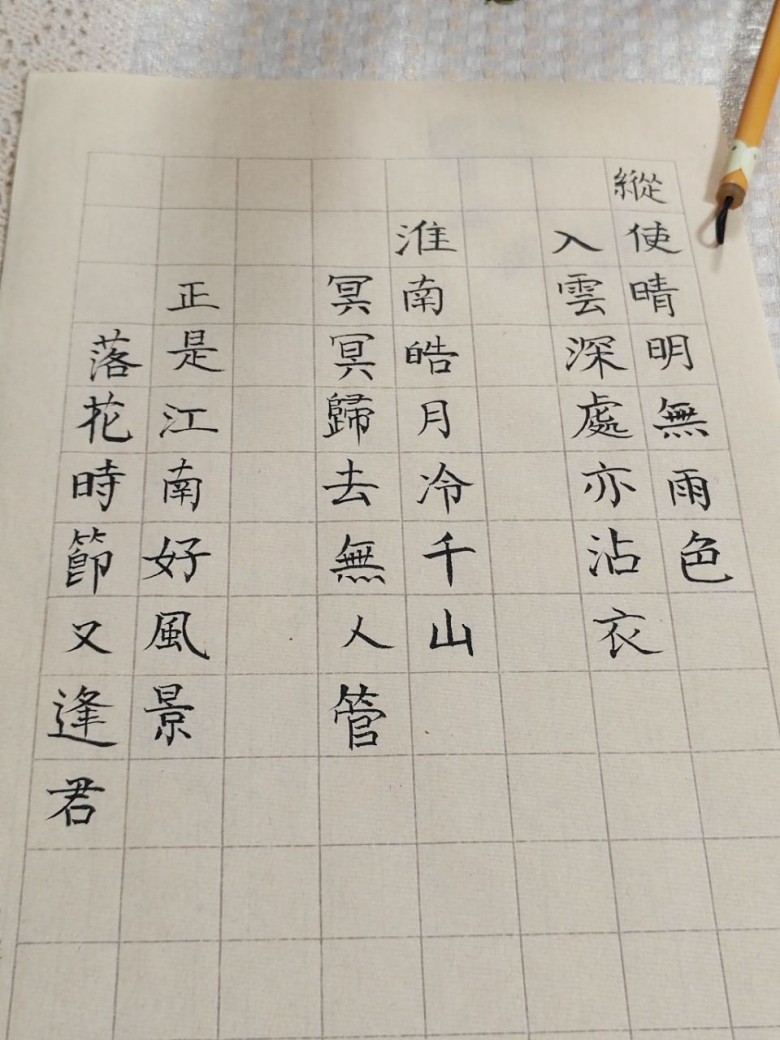 縱使晴明無雨色
入雲深處亦沾衣
淮南皓月冷千山
冥冥歸去無人管
正是江南好風景
落花時節又逢君